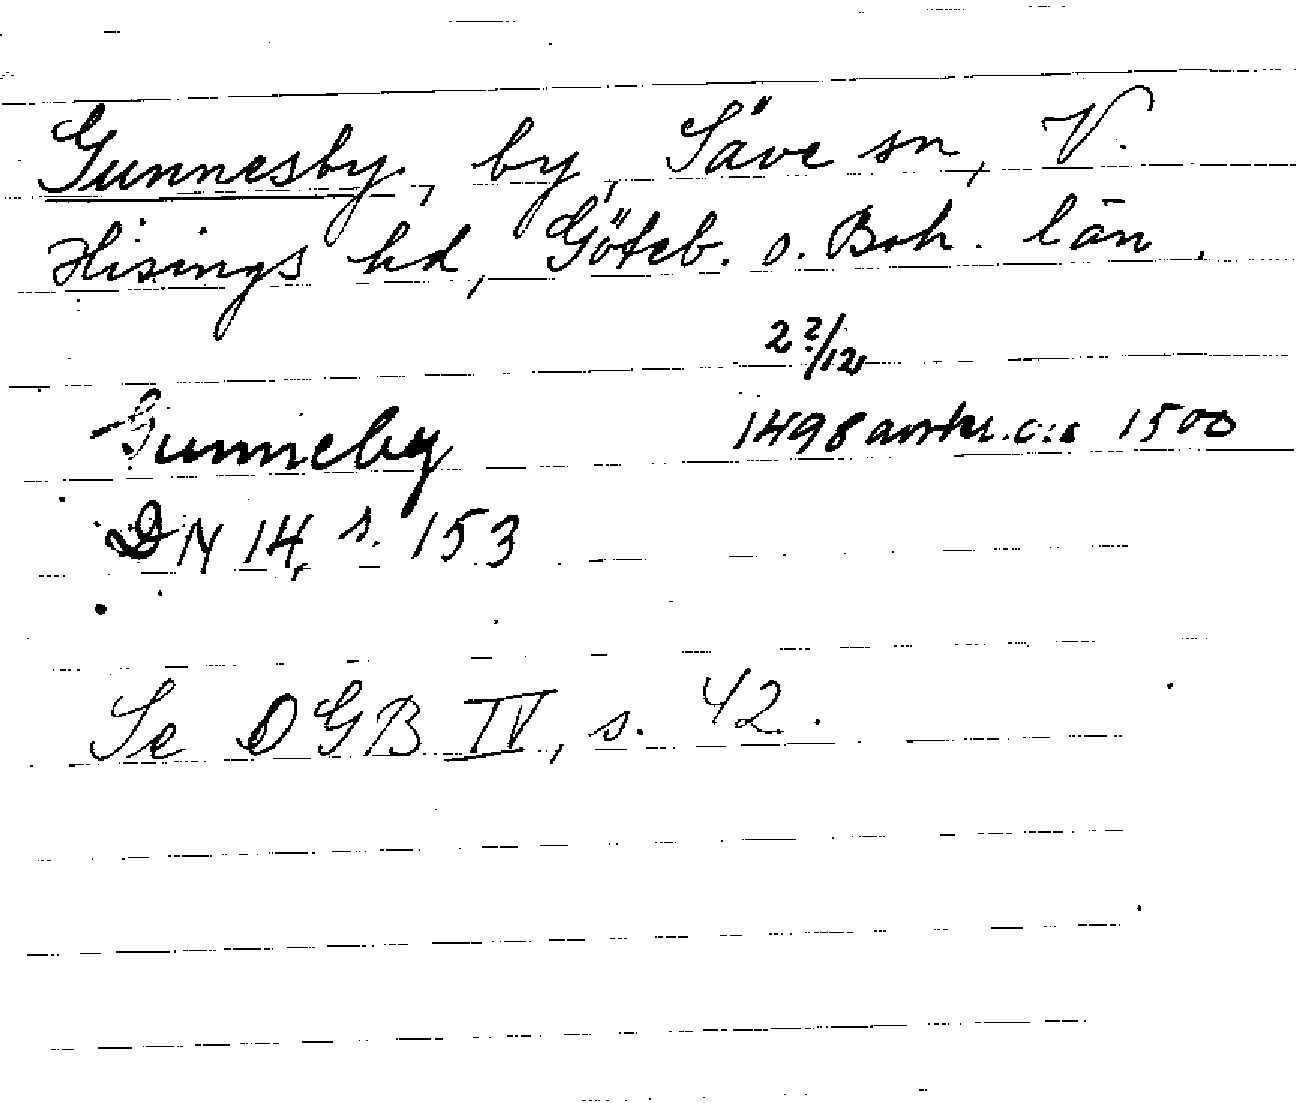 Gunnesby, by, Säve sn, V.
Hisings hd, Göteb. o. Boh. län.
2?/12
Gunneby 1498 avskr. c:a 1500
DN 14, s. 153
Se OGB IV, s. 42.